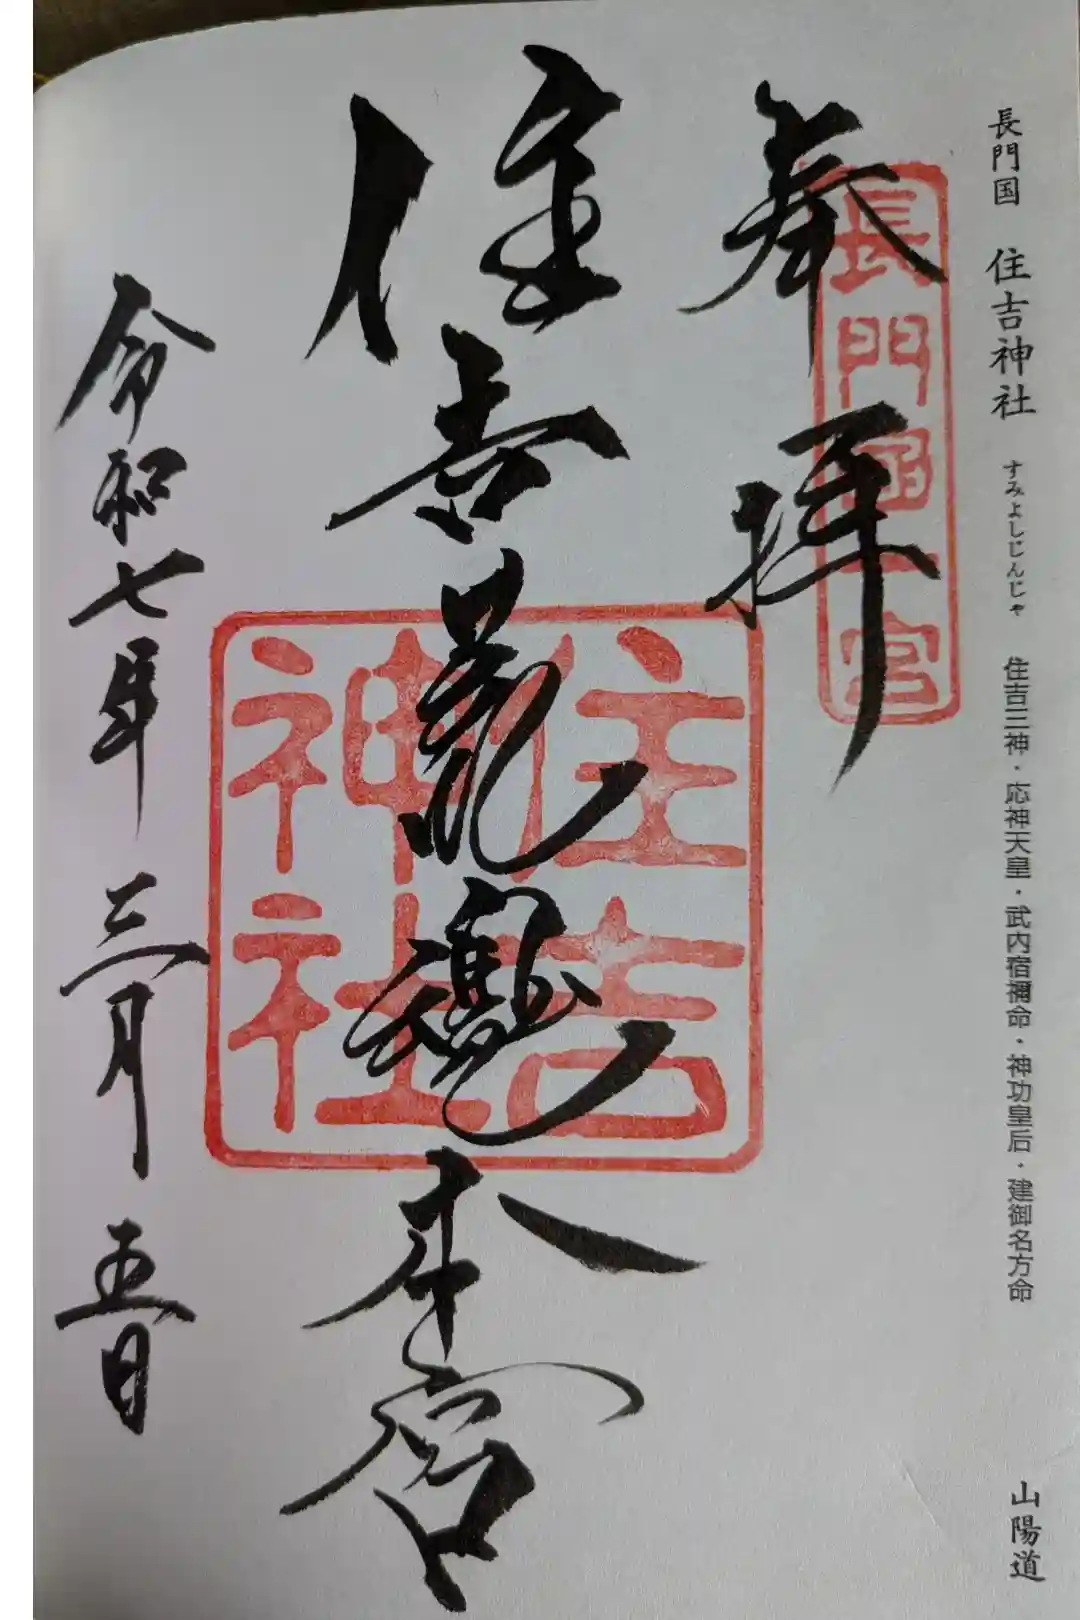 長門国 住吉神社 すみよしじんじゃ 住吉三神・応神天皇・武内宿禰命・神功皇后・建御名方命 山陽道
奉拝
長門國一宮
住吉荒魂本宮
住吉
神社
令和七年三月五日